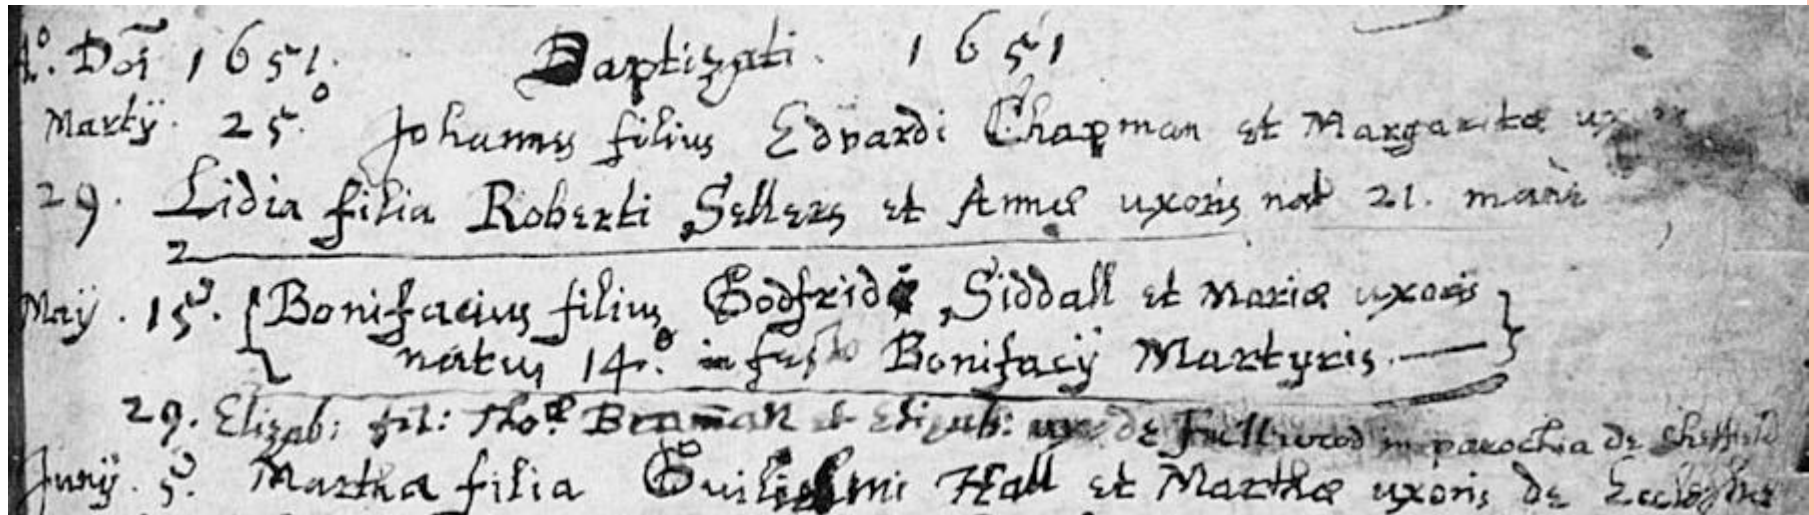 Aº. Doi 1651. Baptizati. 1651
Martij. 25º. Johannes filius Edvardi Chapman et Margaritæ
29. Lidia filia Roberti Sellers et Annæ uxoris nat 21. mane
Maij. 15º. { Bonifacius filius Godfridi Siddall et Mariæ uxoris }
natus 14º. in festo Bonifacij Martyris.
29. Elizab: fil: Tho: et Elizab: ux: de Fullwood in parochia de Sheffeild
Junij. 5º. Martha filia Guilielmi Hall et Marthæ uxoris de